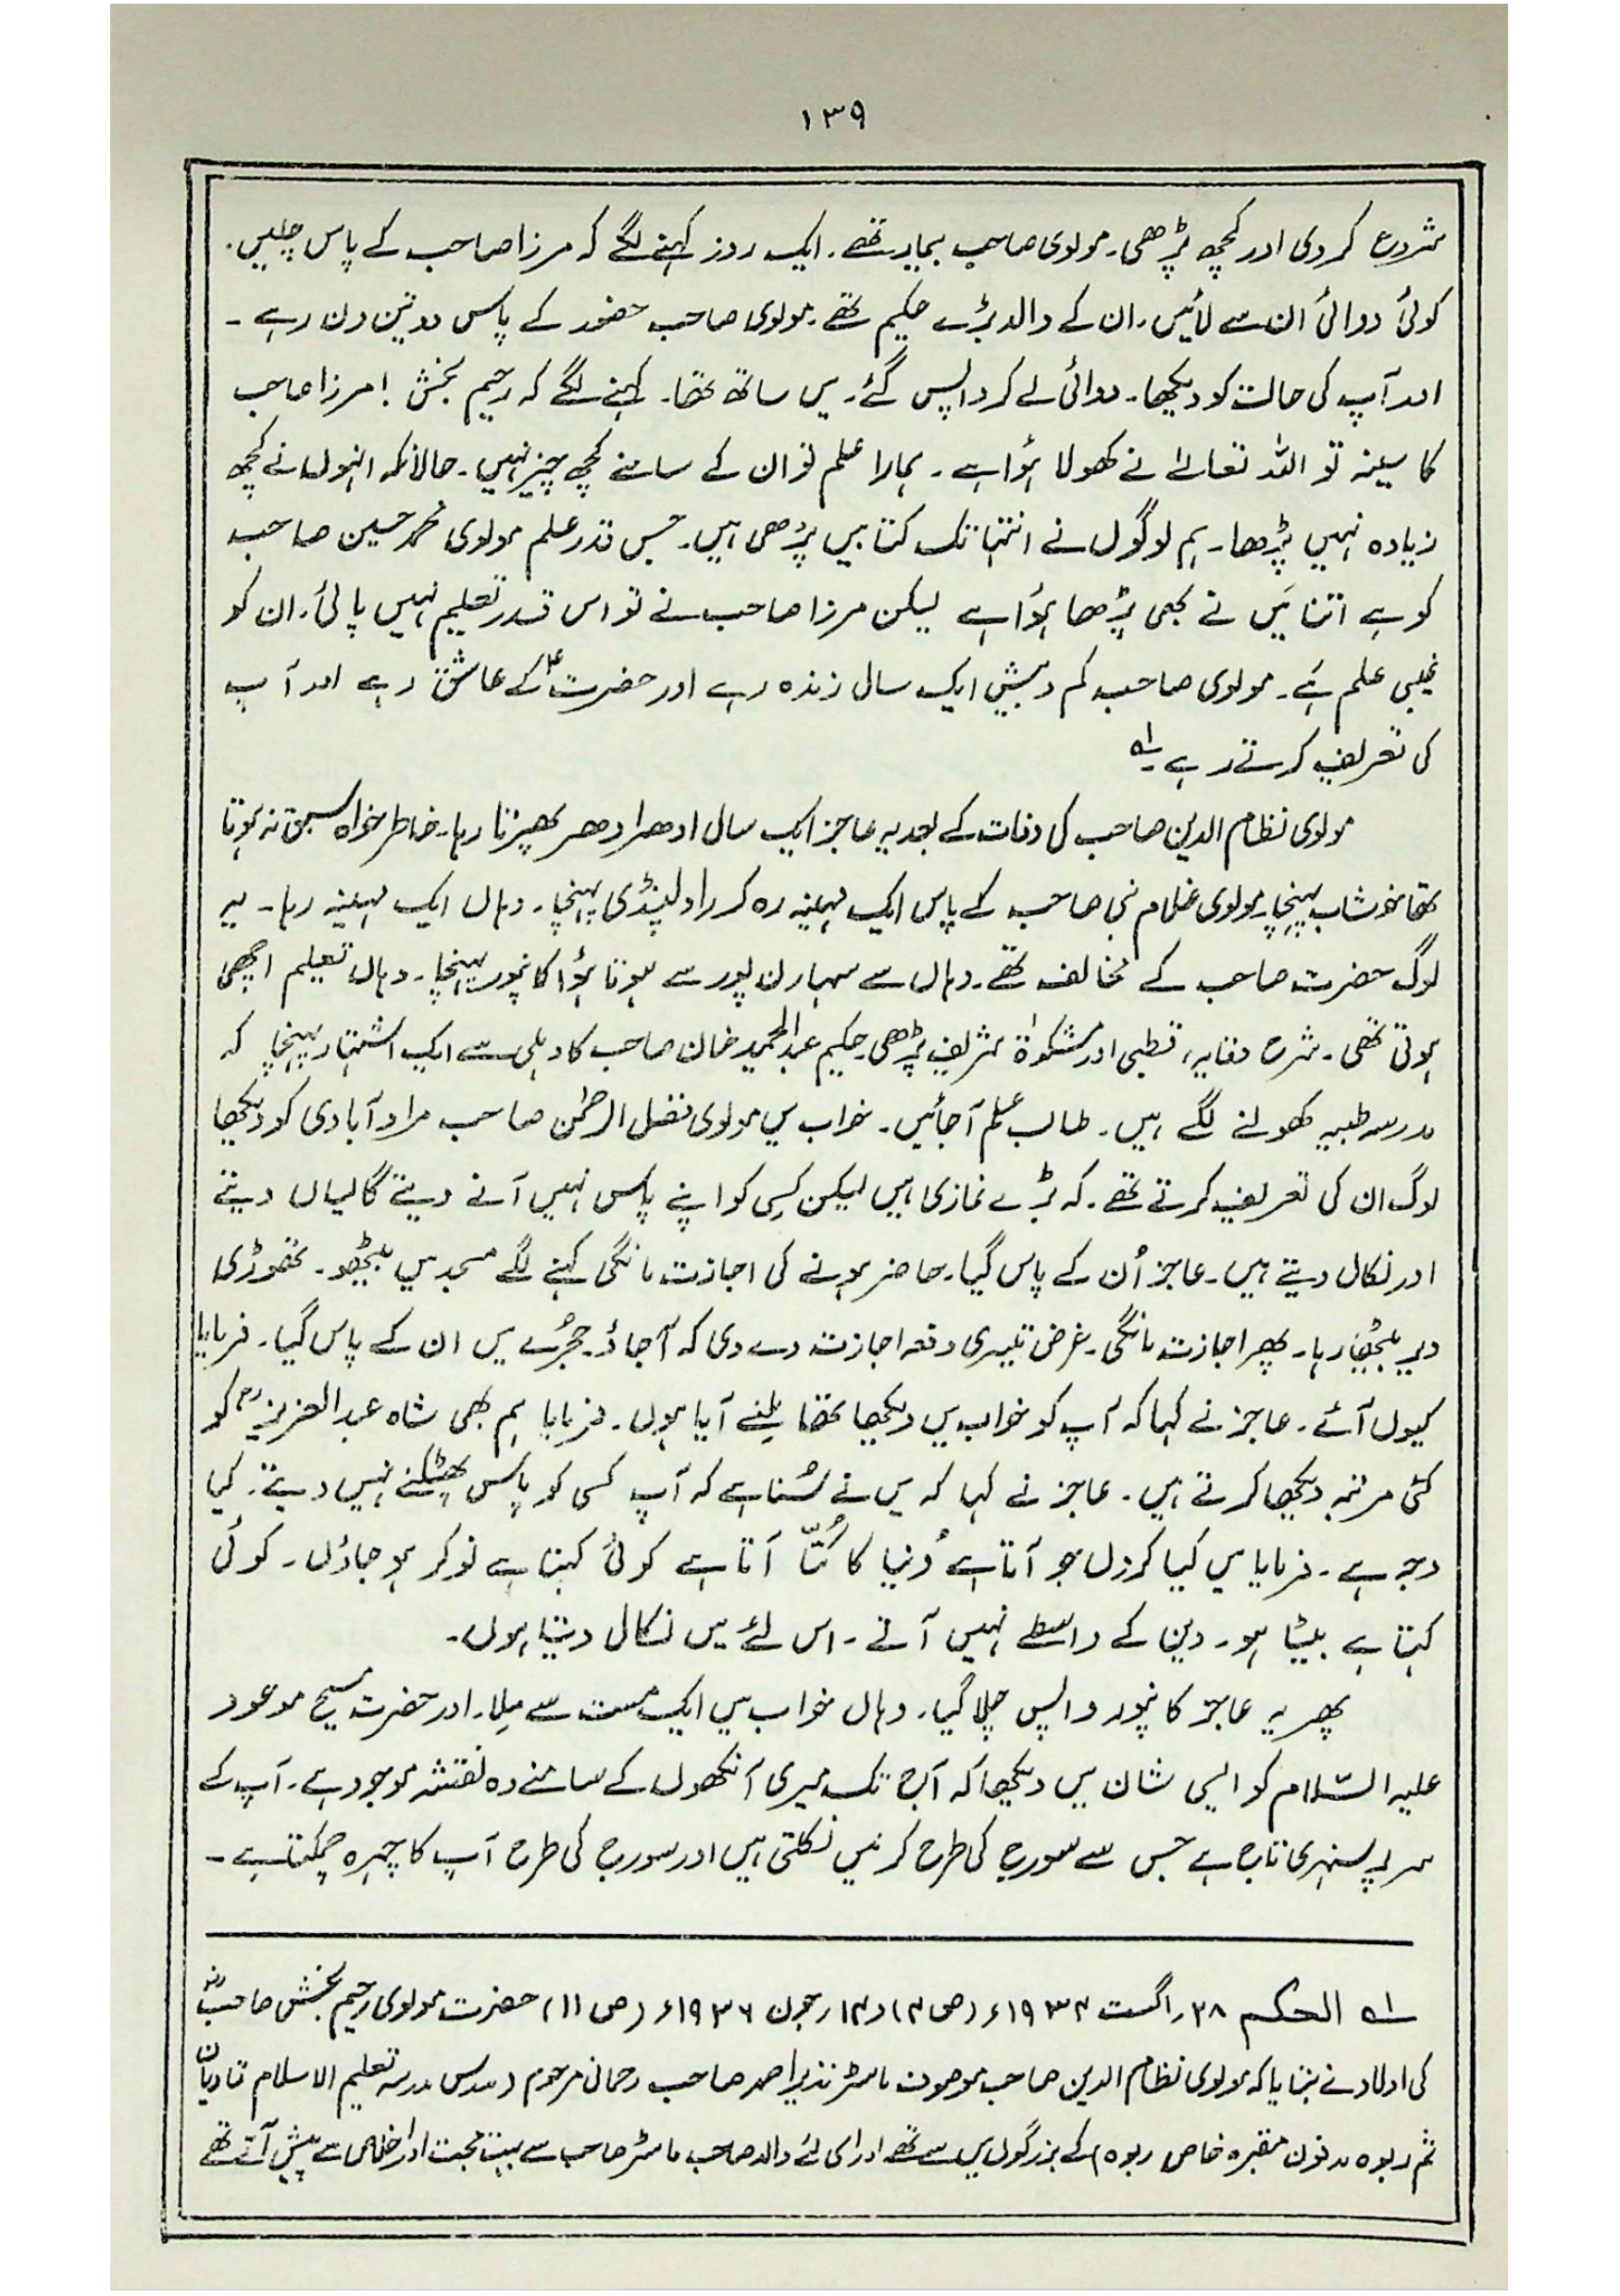 ۱۳۹
شروع کر دی اور کچھ پڑھی۔ مولوی صاحب بیمار تھے۔ ایک روز کہنے لگے کہ مرزا صاحب کے پاس چلیں۔
کوئی دوائی ان سے لائیں۔ ان کے والد بڑے حکیم تھے۔ مولوی صاحب حضور کے پاس دو تین دن رہے۔
اور آپ کی حالت کو دیکھا۔ دوائی لے کر واپس گئے۔ میں ساتھ تھا۔ کہنے لگے کہ رحیم بخش! مرزا صاحب
کا سینہ تو اللہ تعالےٰ نے کھولا ہؤا ہے۔ ہمارا علم تو ان کے سامنے کچھ چیز نہیں۔ حالانکہ انہوں نے کچھ
زیادہ نہیں پڑھا۔ ہم لوگوں نے انتہا تک کتابیں پڑھی ہیں۔ جس قدر علم مولوی محمد حسین صاحب
کو ہے اتنا مَیں نے بھی پڑھا ہؤا ہے لیکن مرزا صاحب نے تو اس قدر تعلیم نہیں پائی۔ ان کو
غیبی علم ہَے۔ مولوی صاحب کم و بیش ایک سال زندہ رہے اور حضرتؑ کے عاشق رہے اور آپ
کی تعریف کرتے رہے۔ ؎۱
مولوی نظام الدین صاحب کی وفات کے بعد یہ عاجز ایک سال ادھر ادھر پھرتا رہا۔ خاطر خواہ سبق نہ ہوتا
تھا خوشاب پہنچا۔ مولوی غلام نبی صاحب کے پاس ایک مہینہ رہ کر راولپنڈی پہنچا۔ وہاں ایک مہینہ رہا۔ یہ
لوگ حضرت صاحب کے مخالف تھے۔ وہاں سے سہارن پور سے ہوتا ہؤا کانپور پہنچا۔ وہاں تعلیم اچھی
ہوتی تھی۔ شرح وقایہ، قطبی اور مشکوٰۃ شریف پڑھی۔ حکیم عبدالحمید خان صاحب کا دہلی سے ایک اشتہار پہنچا کہ
مدرسہ طبیہ کھولنے لگے ہیں۔ طالب علم آجائیں۔ خواب میں مولوی فضل الرحمٰن صاحب مراد آبادی کو دیکھا
لوگ ان کی تعریف کرتے تھے۔ کہ بڑے نمازی ہیں لیکن کسی کو اپنے پاس نہیں آنے دیتے گالیاں دیتے
اور نکال دیتے ہیں۔ عاجز اُن کے پاس گیا۔ حاضر ہونے کی اجازت مانگی کہنے لگے مسجد میں بیٹھو۔ تھوڑی
دیر بیٹھا رہا۔ پھر اجازت مانگی۔ غرض تیسری دفعہ اجازت دے دی کہ آجاؤ۔ حجُرے میں ان کے پاس گیا۔ فرمایا
کیوں آئے۔ عاجز نے کہا کہ آپ کو خواب میں دیکھا تھا ملنے آیا ہوں۔ فرمایا ہم بھی شاہ عبدالعزیزؒ کو
کئی مرتبہ دیکھا کرتے ہیں۔ عاجز نے کہا کہ میں نے سُنا ہے کہ آپ کسی کو پاس پھٹکنے نہیں دیتے۔ کیا
وجہ ہے۔ فرمایا میں کیا کروں جو آتا ہے دُنیا کا کُتّا آتا ہے کوئی کہتا ہے نوکر ہو جاؤں۔ کوئی
کہتا ہے بیٹا ہو۔ دین کے واسطے نہیں آتے۔ اس لئے میں نکال دیتا ہوں۔
پھر یہ عاجز کانپور واپس چلا گیا۔ وہاں خواب میں ایک مست سے مِلا۔ اور حضرت مسیح موعود
علیہ السّلام کو ایسی شان میں دیکھا کہ آج تک میری آنکھوں کے سامنے وہ نقشہ موجود ہے۔ آپ کے
سر پر سنہری تاج ہے جس سے سورج کی طرح کرنیں نکلتی ہیں اور سورج کی طرح آپ کا چہرہ چمکتا ہے۔
؎۱ الحکم ۲۸؍ اگست ۱۹۳۴ء (ص ۴) و ۱۴؍ جون ۱۹۳۶ء (ص ۱۱) حضرت مولوی رحیم بخش صاحبؓ
کی اولاد نے بتایا کہ مولوی نظام الدین صاحب موصوف ماسٹر نذیر احمد صاحب رحمانی مرحوم (مدرس مدرسہ تعلیم الاسلام قادیان
ثم ربوہ مدفون مقبرہ خاص ربوہ) کے بزرگوں میں سے تھے اور اسی لئے والد صاحب ماسٹر صاحب سے بہت محبت اور اخلاص سے پیش آتے تھے